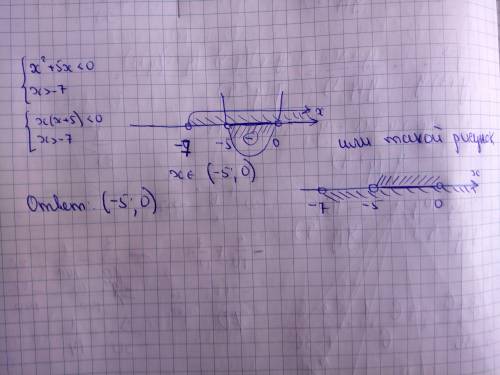 x²+5x<0
x>-7
x(x+5)<0
x>-7
-7 -5 0 x
x∈ (-5;0)
Ответ: (-5;0)
или такой рисунок
-7 -5 0 x